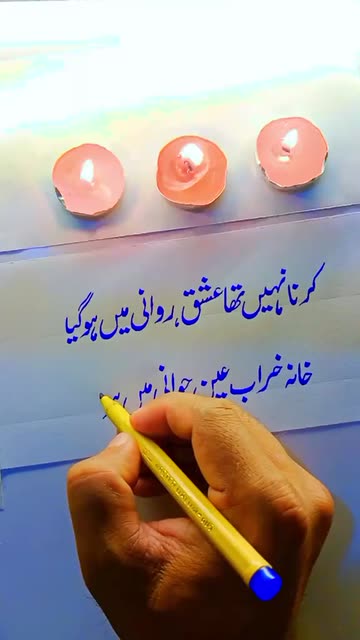 کرنا نہیں تھا عشق، روانی میں ہوگیا
خانہ خراب عین جوانی میں